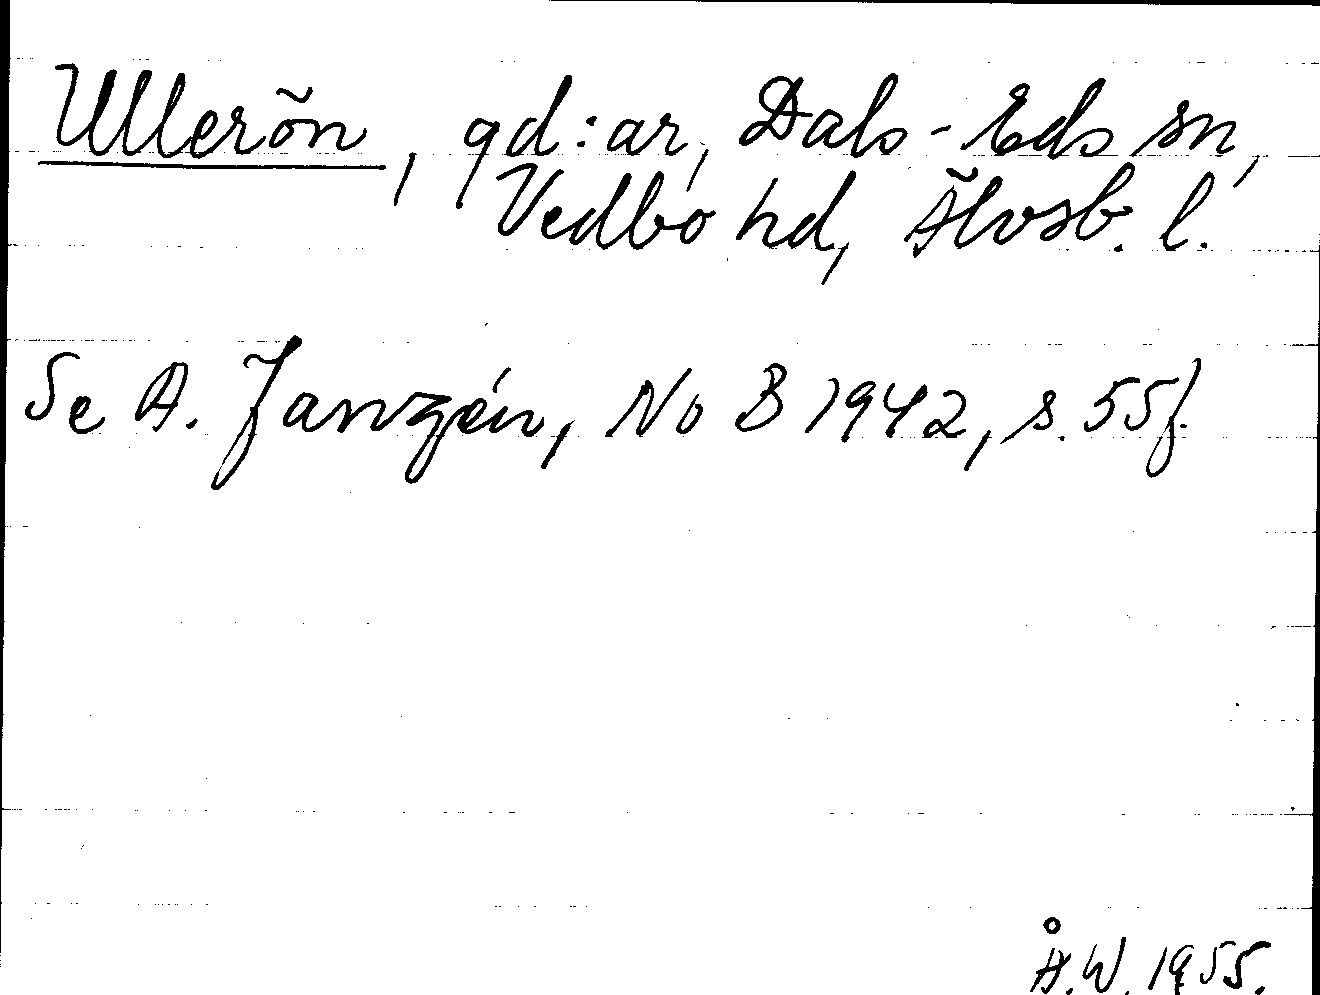 Ullerön, gd:ar, Dals-Eds sn,
Vedbo hd, Älvsb. l.
Se A. Janzén, No B 1942, s. 55f.
Å.W. 1955.